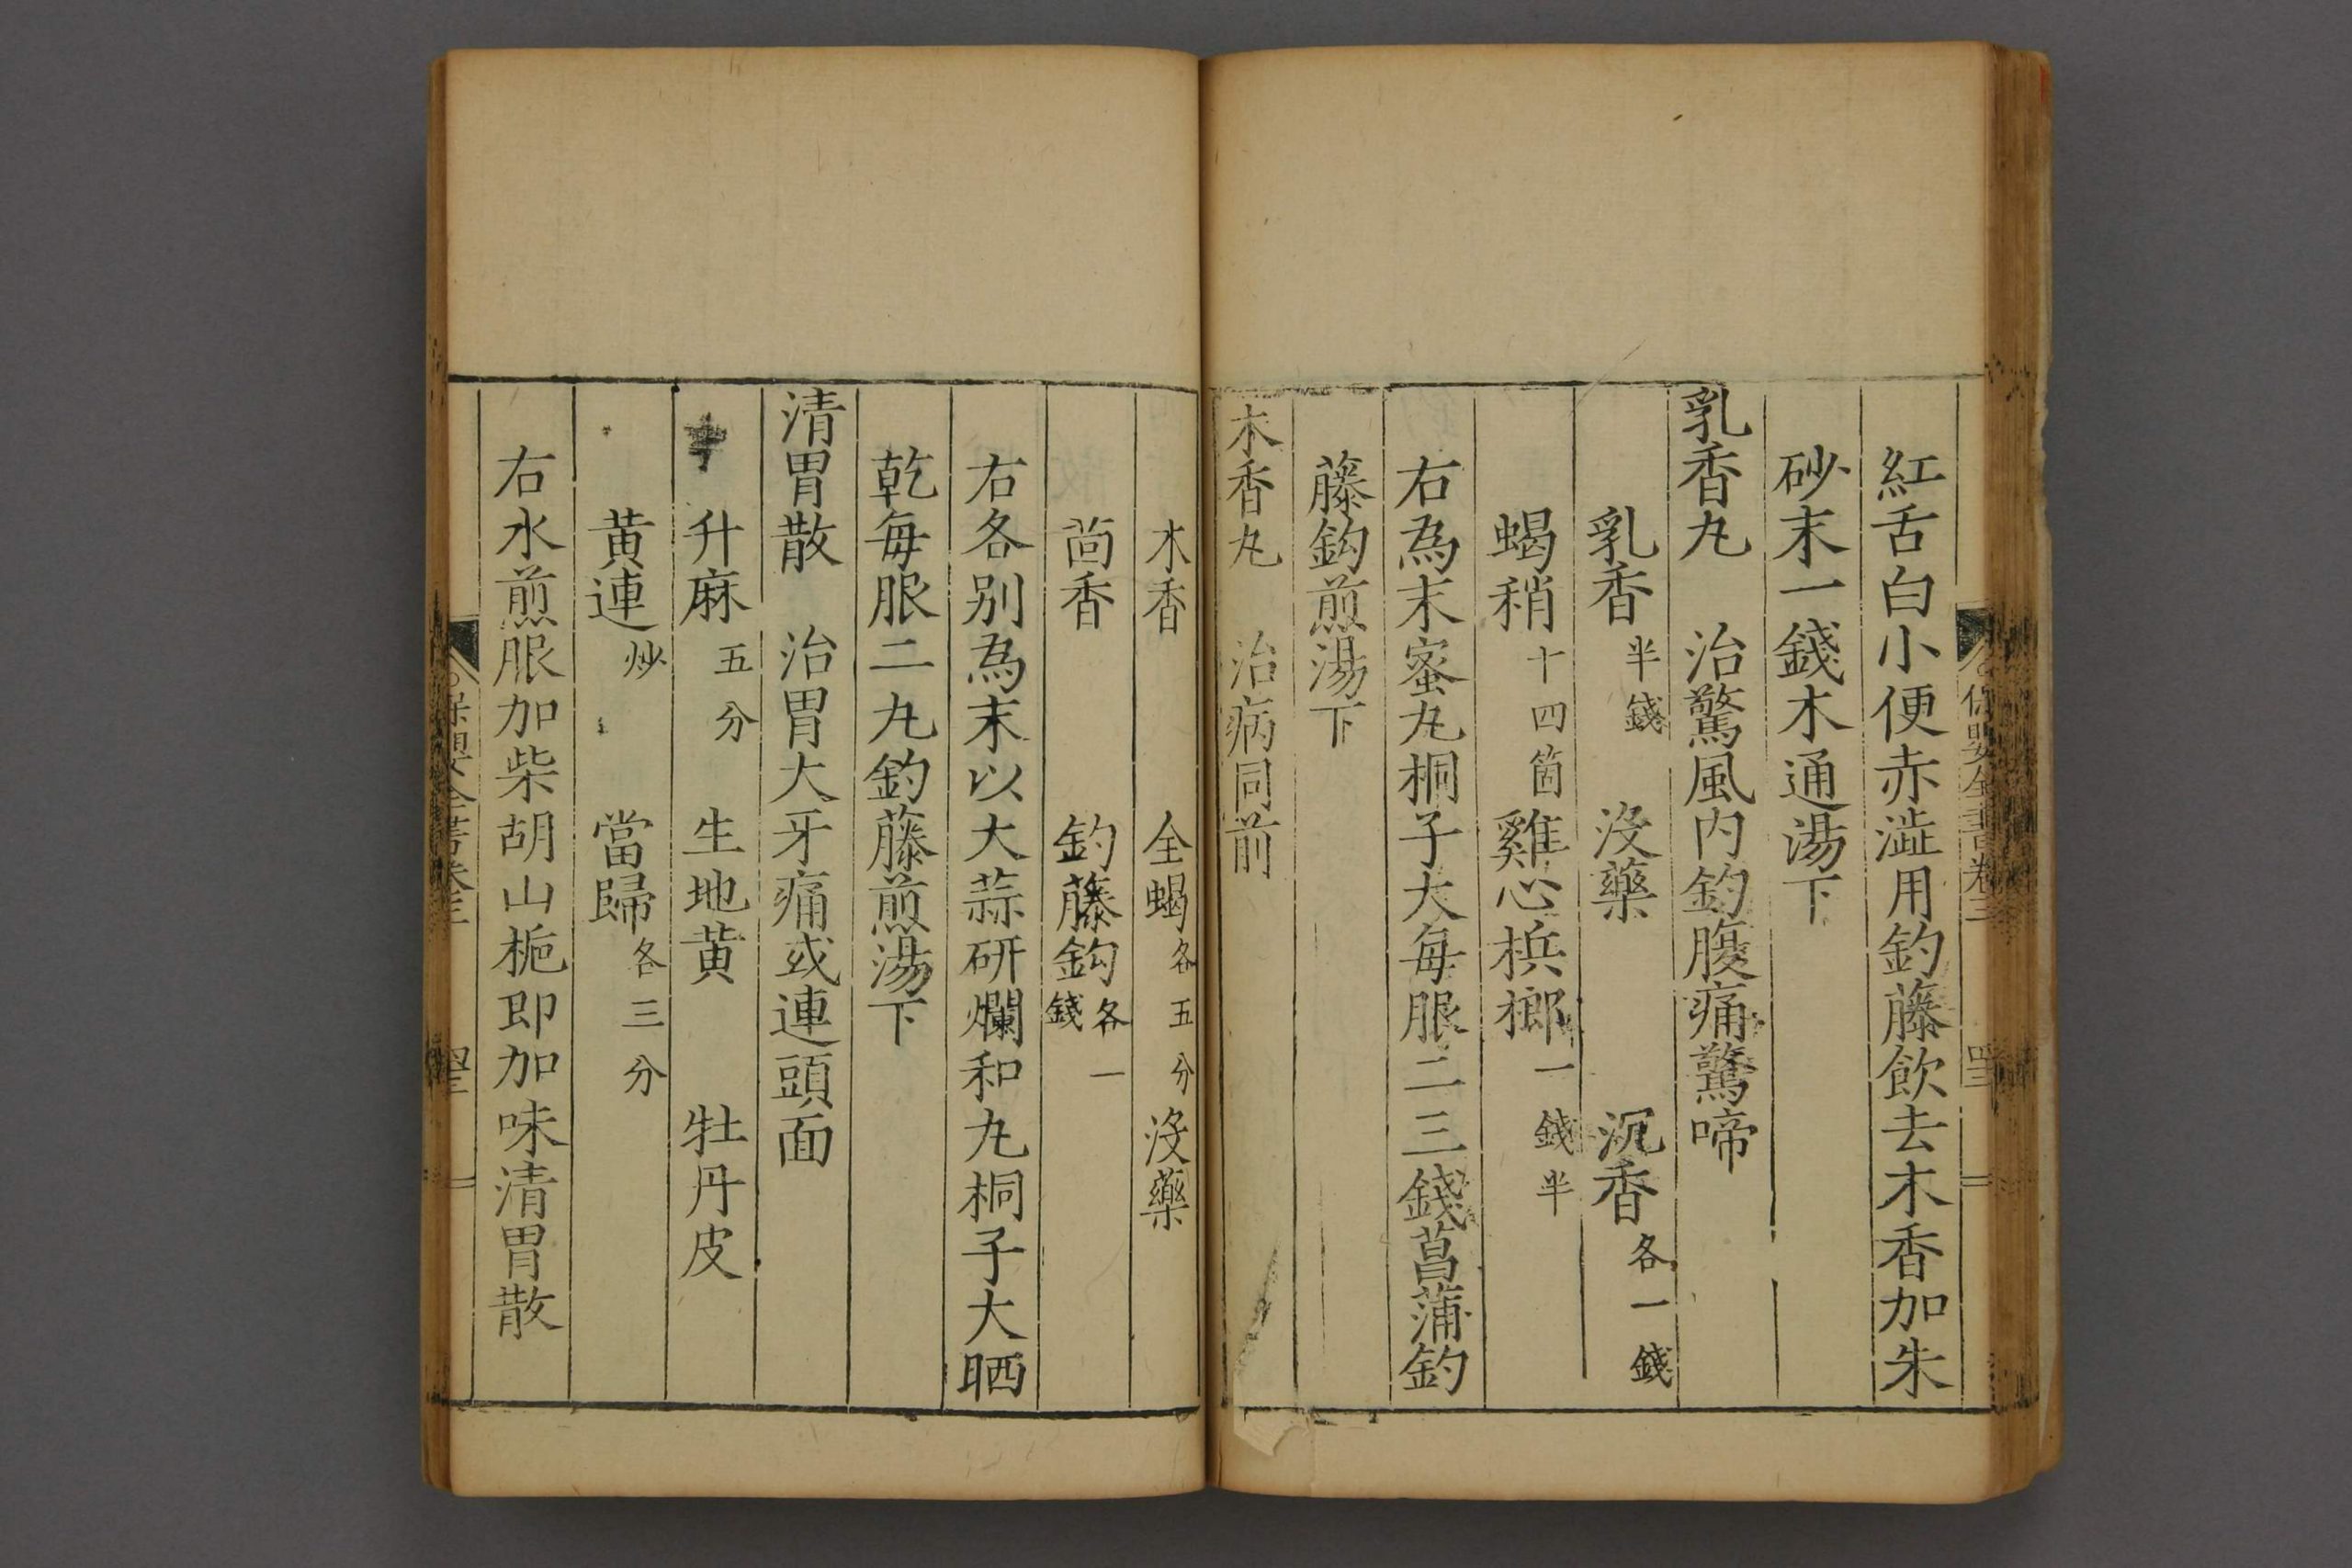 紅舌白小便赤澁用釣藤飲去木香加朱
砂末一錢木通湯下
乳香丸 治驚風内釣腹痛驚啼
乳香半錢 沒藥 沉香各一錢
蝎稍十四箇 雞心梹榔一錢半
右為末蜜丸桐子大每服二三錢菖蒲釣
藤鈎煎湯下
木香丸 治病同前
木香 全蝎各五分 沒藥
茴香 釣藤鈎各一錢
右各别為末以大蒜研爛和丸桐子大晒
乾每服二丸釣藤煎湯下
清胃散 治胃大牙痛或連頭面
升麻五分 生地黄 牡丹皮
黄連炒 當歸各三分
右水煎服加柴胡山梔即加味清胃散